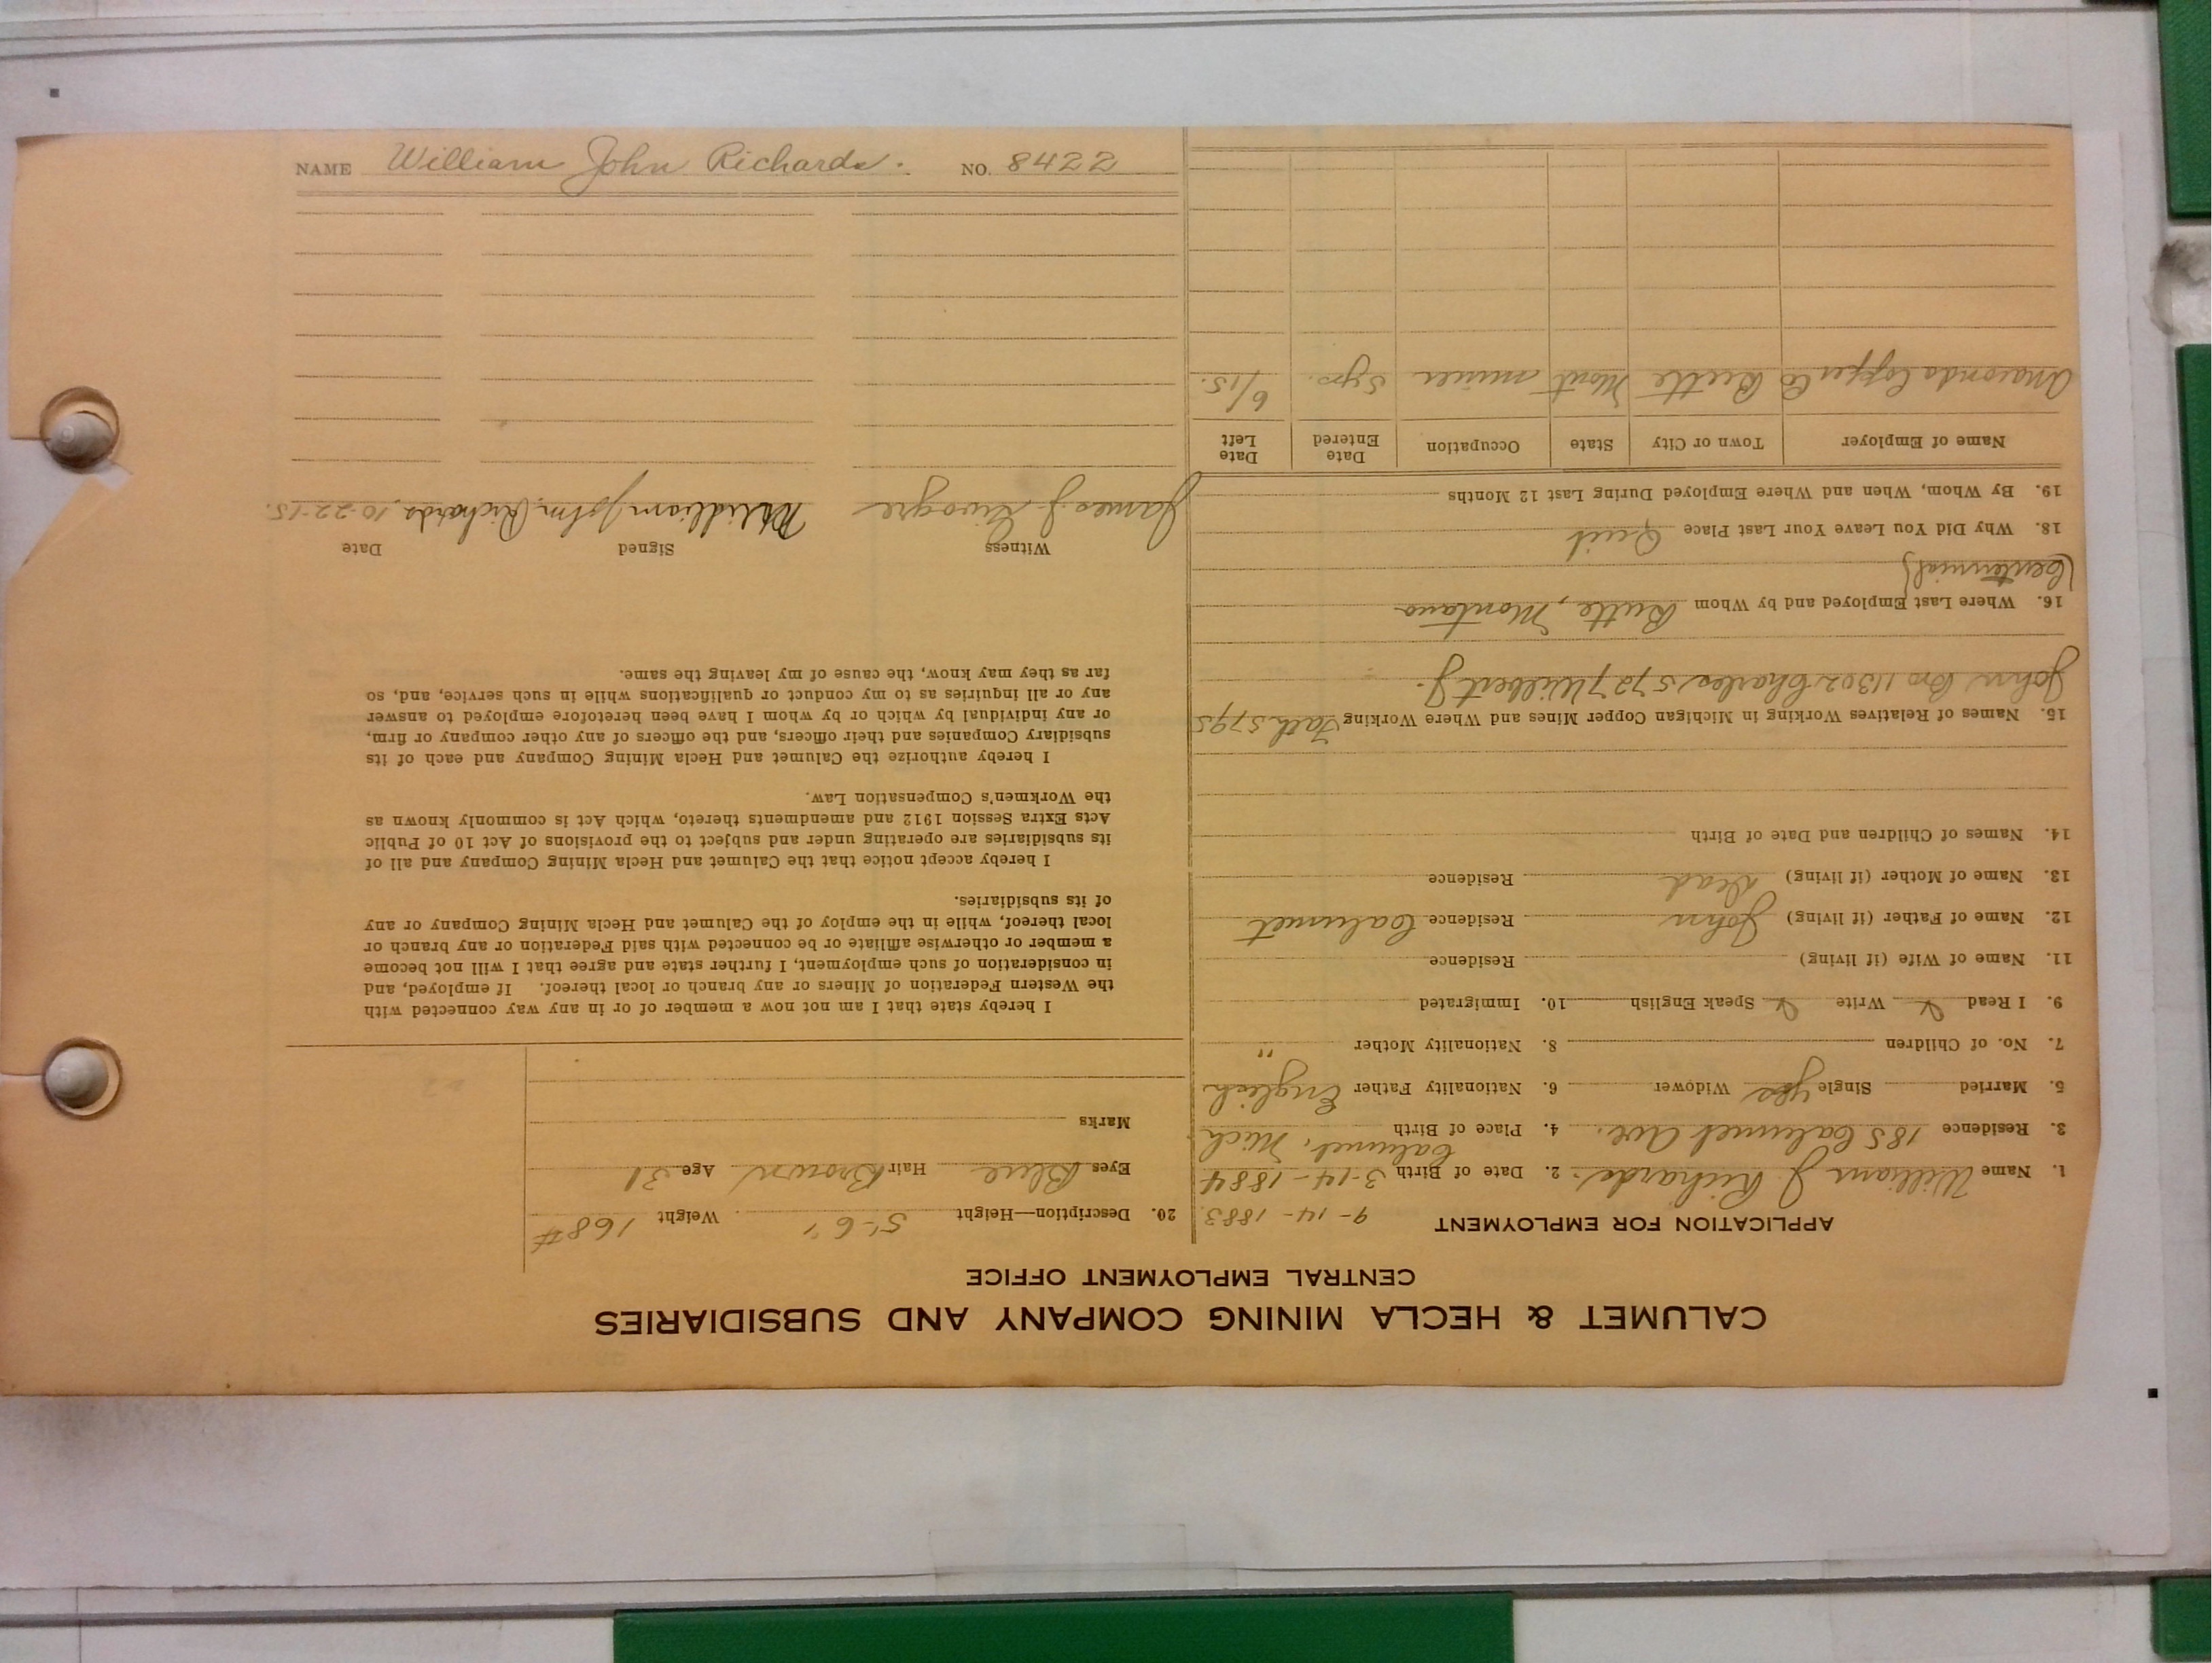 NAME William John Richards. NO. 8422
CALUMET & HECLA MINING COMPANY AND SUBSIDIARIES
CENTRAL EMPLOYMENT OFFICE
APPLICATION FOR EMPLOYMENT
9-14-1883.
1. Name William J. Richards. 2. Date of Birth 3-14-1884
3. Residence 185 Calumet Ave. 4. Place of Birth Calumet, Mich
5. Married Single yes Widower 6. Nationality Father English
7. No. of Children 8. Nationality Mother "
9. I Read Write Speak English 10. Immigrated
11. Name of Wife (if living) Residence
12. Name of Father (if living) John Residence Calumet
13. Name of Mother (if living) Dead Residence
14. Names of Children and Date of Birth
15. Names of Relatives Working in Michigan Copper Mines and Where Working Fath 5795
John Bro 11302 Charles 5727 Wilbert J.
16. Where Last Employed and by Whom Butte, Montana
(Centennial)
18. Why Did You Leave Your Last Place Quit
19. By Whom, When and Where Employed During Last 12 Months
Name of Employer Town or City State Occupation Date Entered Date Left
Anaconda Copper Co Butte Mont miner 5 yrs. 6/15.
20. Description—Height 5'-6" Weight 168#
Eyes Blue Hair Brown Age 31
Marks
I hereby state that I am not now a member of or in any way connected with
the Western Federation of Miners or any branch or local thereof. If employed, and
in consideration of such employment, I further state and agree that I will not become
a member or otherwise affiliate or be connected with said Federation or any branch or
local thereof, while in the employ of the Calumet and Hecla Mining Company or any
of its subsidiaries.
I hereby accept notice that the Calumet and Hecla Mining Company and all of
its subsidiaries are operating under and subject to the provisions of Act 10 of Public
Acts Extra Session 1912 and amendments thereto, which Act is commonly known as
the Workmen's Compensation Law.
I hereby authorize the Calumet and Hecla Mining Company and each of its
subsidiary Companies and their officers, and the officers of any other company or firm,
or any individual by which or by whom I have been heretofore employed to answer
any or all inquiries as to my conduct or qualifications while in such service, and, so
far as they may know, the cause of my leaving the same.
Witness Signed Date
James J. William John Richards. 10-22-15.